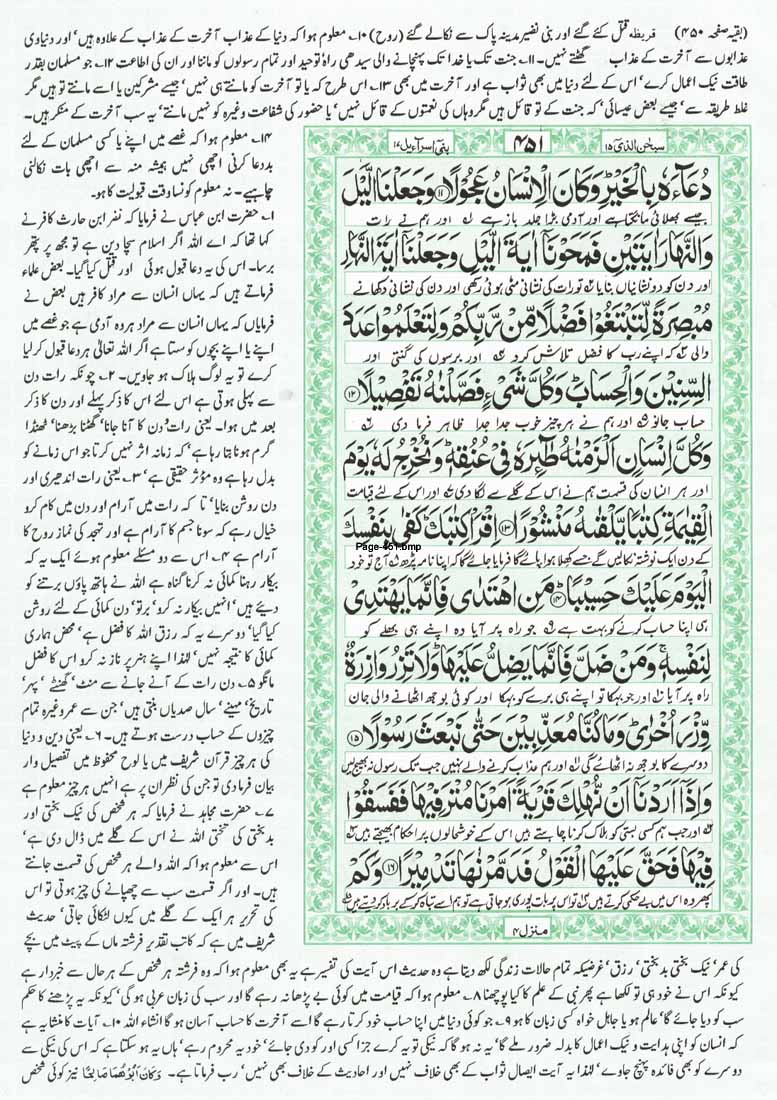 (بقیہ صفحہ ۴۵۰) قریظہ قتل کئے گئے اور بنی نضیر مدینہ پاک سے نکالے گئے (روح) ۱۰۔ معلوم ہوا کہ دنیا کے عذاب آخرت کے عذاب کے علاوہ ہیں' اور دنیاوی
عذابوں سے آخرت کے عذاب گھٹتے نہیں۔ ۱۱۔ جنت تک یا خدا تک پہنچانے والی سیدھی راہ توحید اور تمام رسولوں کو ماننا اور ان کی اطاعت ۱۲۔ جو مسلمان بقدر
طاقت نیک اعمال کرے' اس کے لئے دنیا میں بھی ثواب ہے اور آخرت میں بھی ۱۳۔ اس طرح کہ یا تو آخرت کو مانتے ہی نہیں' جیسے مشرکین یا اسے مانتے تو ہیں مگر
غلط طریقہ سے' جیسے بعض عیسائی' کہ جنت کے تو قائل ہیں مگر وہاں کی نعمتوں کے قائل نہیں' یا حضور کی شفاعت وغیرہ کو نہیں مانتے' یہ سب آخرت کے منکر ہیں۔
سبحٰن الذی ۱۵
۴۵۱
بنی اسرآءیل ۱۷
دُعَآءَهٗ بِالْخَيْرِ وَكَانَ الْاِنْسَانُ عَجُوْلًا ۱۱ وَجَعَلْنَا الَّيْلَ
جیسے بھلائی مانگتا ہے اور آدمی بڑا جلد باز ہے اور ہم نے رات
وَالنَّهَارَ اٰيَتَيْنِ فَمَحَوْنَآ اٰيَةَ الَّيْلِ وَجَعَلْنَآ اٰيَةَ النَّهَارِ
اور دن کو دو نشانیاں بنایا تو رات کی نشانی مٹی ہوئی رکھی اور دن کی نشانی دکھانے
مُبْصِرَةً لِّتَبْتَغُوْا فَضْلًا مِّنْ رَّبِّكُمْ وَلِتَعْلَمُوْا عَدَدَ
والی کہ اپنے رب کا فضل تلاش کرو اور برسوں کی گنتی اور
السِّنِيْنَ وَالْحِسَابَ وَكُلَّ شَيْءٍ فَصَّلْنٰهُ تَفْصِيْلًا ۱۲
حساب جانو اور ہم نے ہر چیز خوب جدا جدا ظاہر فرما دی
وَكُلَّ اِنْسَانٍ اَلْزَمْنٰهُ طٰٓئِرَهٗ فِيْ عُنُقِهٖ وَنُخْرِجُ لَهٗ يَوْمَ
اور ہر انسان کی قسمت ہم نے اس کے گلے سے لگا دی اور اس کے لئے قیامت
الْقِيٰمَةِ كِتٰبًا يَّلْقٰىهُ مَنْشُوْرًا ۱۳ اِقْرَاْ كِتٰبَكَ كَفٰى بِنَفْسِكَ
Page-451.bmp
کے دن ایک نوشتہ نکالیں گے جسے کھلا ہوا پائے گا فرمایا جائے گا کہ اپنا نامہ پڑھ آج تو خود
الْيَوْمَ عَلَيْكَ حَسِيْبًا ۱۴ مَنِ اهْتَدٰى فَاِنَّمَا يَهْتَدِيْ
ہی اپنا حساب کرنے کو بہت ہے جو راہ پر آیا وہ اپنے ہی بھلے کو
لِنَفْسِهٖ وَمَنْ ضَلَّ فَاِنَّمَا يَضِلُّ عَلَيْهَا وَلَا تَزِرُ وَازِرَةٌ
راہ پر آیا اور جو بہکا تو اپنے ہی برے کو بہکا اور کوئی بوجھ اٹھانے والی جان
وِّزْرَ اُخْرٰى وَمَا كُنَّا مُعَذِّبِيْنَ حَتّٰى نَبْعَثَ رَسُوْلًا ۱۵
دوسرے کا بوجھ نہ اٹھائے گی اور ہم عذاب کرنے والے نہیں جب تک رسول نہ بھیج لیں
وَاِذَآ اَرَدْنَآ اَنْ نُّهْلِكَ قَرْيَةً اَمَرْنَا مُتْرَفِيْهَا فَفَسَقُوْا
اور جب ہم کسی بستی کو ہلاک کرنا چاہتے ہیں اس کے خوشحالوں پر احکام بھیجتے ہیں
فِيْهَا فَحَقَّ عَلَيْهَا الْقَوْلُ فَدَمَّرْنٰهَا تَدْمِيْرًا ۱۶ وَكَمْ
پھر وہ اس میں بے حکمی کرتے ہیں تو اس پر بات پوری ہو جاتی ہے تو ہم اسے تباہ کر کے برباد کر دیتے ہیں
منزل ۴
۱۴۔ معلوم ہوا کہ غصے میں اپنے یا کسی مسلمان کے لئے
بددعا کرنی اچھی نہیں ہمیشہ منہ سے اچھی بات نکالنی
چاہیے۔ نہ معلوم کونسا وقت قبولیت کا ہو۔
۱۔ حضرت ابن عباس نے فرمایا کہ نضر ابن حارث کافر نے
کہا تھا کہ اے اللہ اگر اسلام سچا دین ہے تو مجھ پر پتھر
برسا۔ اس کی یہ دعا قبول ہوئی اور قتل کیا گیا۔ بعض علماء
فرماتے ہیں کہ یہاں انسان سے مراد کافر ہیں بعض نے
فرمایا کہ یہاں انسان سے مراد ہر وہ آدمی ہے جو غصے میں
اپنے یا اپنے بچوں کو کوستا ہے اگر اللہ تعالیٰ ہر دعا قبول کر لیا
کرے تو یہ لوگ ہلاک ہو جاویں۔ ۲۔ چونکہ رات دن
سے پہلی ہوتی ہے اس لئے اس کا ذکر پہلے اور دن کا ذکر
بعد میں ہوا۔ یعنی رات و دن کا آنا جانا' گھٹنا بڑھنا' ٹھنڈا
گرم ہونا بتا رہا ہے' کہ زمانہ اثر نہیں کرتا جو اس زمانے کو
بدل رہا ہے وہ مؤثر حقیقی ہے ۳۔ یعنی رات اندھیری اور
دن روشن بنایا' تا کہ رات میں آرام اور دن میں کام کرو
خیال رہے کہ سونا جسم کا آرام ہے اور تہجد کی نماز روح کا
آرام ہے ۴۔ اس سے دو مسئلے معلوم ہوئے ایک یہ کہ
بیکار رہنا کمائی نہ کرنا گناہ ہے اللہ نے ہاتھ پاؤں برتنے کو
دیئے ہیں' انہیں بیکار نہ کرو' برتو' دن کمائی کے لئے روشن
کیا گیا' دوسرے یہ کہ رزق اللہ کا فضل ہے' محض ہماری
کمائی کا نتیجہ نہیں' لہٰذا اپنے ہنر پر ناز نہ کرو اس کا فضل
مانگو ۵۔ دن رات کے آنے جانے سے منٹ' گھنٹے' پہر'
تاریخ' مہینے' سال صدیاں بنتی ہیں' جن سے عمر وغیرہ تمام
چیزوں کے حساب درست ہوتے ہیں۔ ۶۔ یعنی دین و دنیا
کی ہر چیز قرآن شریف میں یا لوح محفوظ میں تفصیل وار
بیان فرما دی تو جن کی نظر ان پر ہے انہیں ہر چیز معلوم ہے
۷۔ حضرت مجاہد نے فرمایا کہ ہر شخص کی نیک بختی اور
بدبختی کی تختی اللہ نے اس کے گلے میں ڈال دی ہے'
اس سے معلوم ہوا کہ اللہ والے ہر شخص کی قسمت جانتے
ہیں۔ اور اگر قسمت سب سے چھپانے کی چیز ہوتی تو اس
کی تحریر ہر ایک کے گلے میں کیوں لٹکائی جاتی' حدیث
شریف میں ہے کہ کاتب تقدیر فرشتہ ماں کے پیٹ میں بچے
کی عمر' نیک بختی بدبختی' رزق' غرضیکہ تمام حالات زندگی لکھ دیتا ہے وہ حدیث اس آیت کی تفسیر ہے یہ بھی معلوم ہوا کہ وہ فرشتہ ہر شخص کے ہر حال سے خبردار ہے
کیونکہ اس نے خود ہی تو لکھا ہے پھر نبی کے علم کا کیا پوچھنا ۸۔ معلوم ہوا کہ قیامت میں کوئی بے پڑھا نہ رہے گا اور سب کی زبان عربی ہو گی' کیونکہ یہ پڑھنے کا حکم
سب کو دیا جائے گا' عالم ہو یا جاہل خواہ کسی زبان کا ہو ۹۔ جو کوئی دنیا میں اپنا حساب خود کرتا رہے گا اسے آخرت کا حساب آسان ہو گا انشاء اللہ ۱۰۔ آیات کا منشا یہ ہے
کہ انسان کو اپنی ہدایت و نیک اعمال کا بدلہ ضرور ملے گا' یہ نہ ہو گا کہ نیکی تو یہ کرے جزا کسی اور کو دی جائے' خود یہ محروم رہے' ہاں یہ ہو سکتا ہے کہ اس کی نیکی سے
دوسرے کو بھی فائدہ پہنچ جاوے' لہٰذا یہ آیت ایصال ثواب کے بھی خلاف نہیں اور احادیث کے خلاف بھی نہیں' رب فرماتا ہے۔ وَكَانَ اَبُوْهُمَا صَالِحًا نیز کوئی شخص